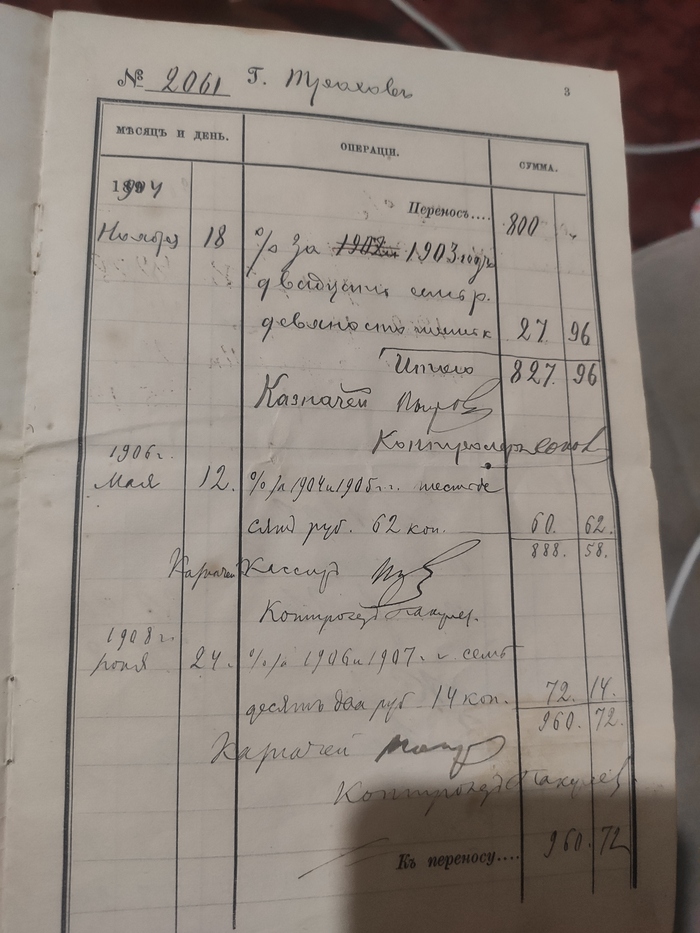 № 2061 Г.
3
МѢСЯЦЪ И ДЕНЬ. ОПЕРАЦІИ. СУММА.
1904
Переносъ.... 800
Ноября 18 % за 1903 годъ
двадцать семь р.
девяносто шесть к 27. 96
Итого 827. 96
Казначей
Контролеръ
1906 г.
Мая 12. % за 1904 и 1905 г. г. шестьде
сятъ руб. 62 коп. 60. 62.
888. 58.
Казначей Кассир
Контролеръ
1908 г.
24. % за 1906 и 1907. г. семь
десятъ два руб 14 коп. 72. 14.
960. 72.
Казначей
Контролеръ
Къ переносу.... 960. 72